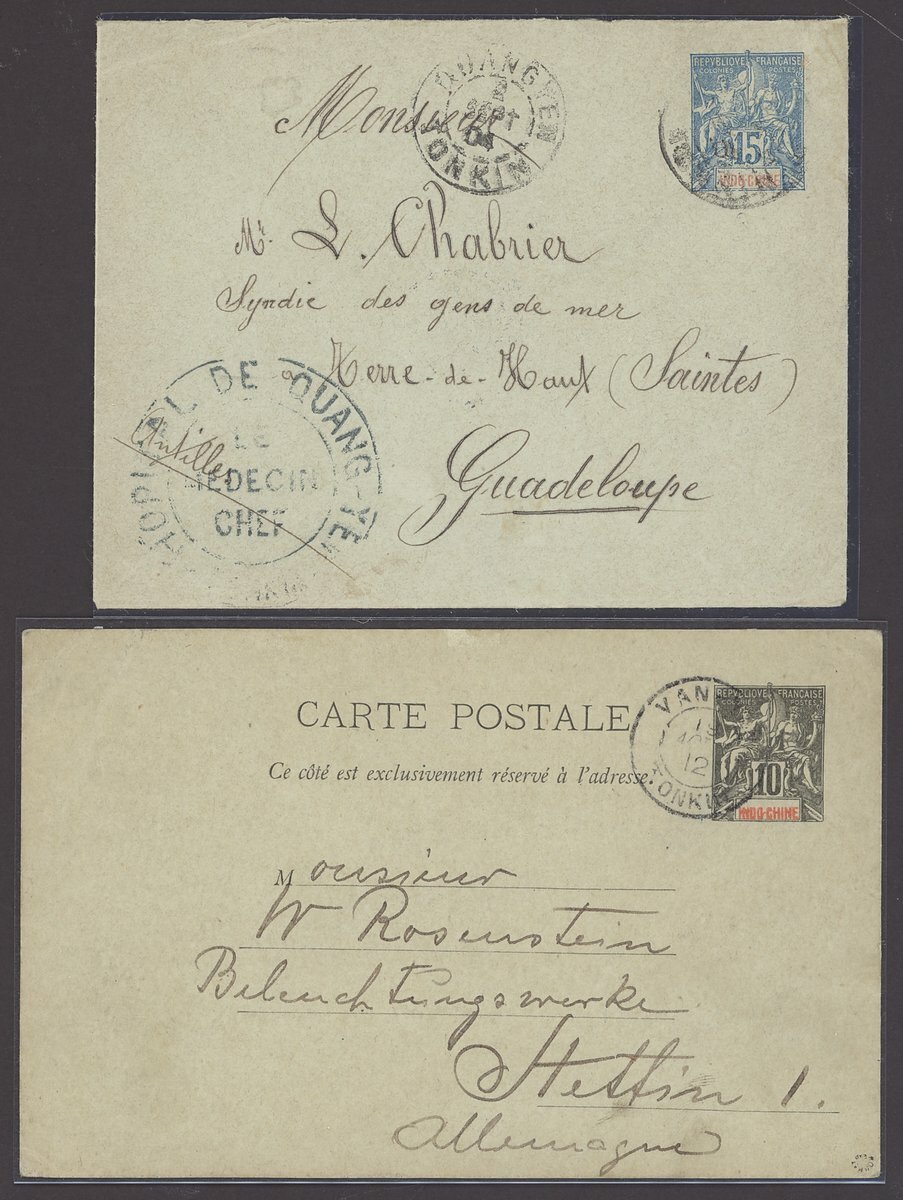 QUANGYEN
2
SEPT
04
TONKIN
REPUBLIQUE FRANÇAISE
COLONIES POSTES
15
INDO-CHINE
Monsieur
Mr. L. Chabrier
Syndic des gens de mer
Terre-de-Haut (Saintes)
Guadeloupe
(Antilles)
HOPITAL DE QUANG-YEN
LE
MEDECIN
CHEF
CARTE POSTALE
Ce côté est exclusivement réservé à l'adresse.
VAN
12
TONKIN
REPUBLIQUE FRANÇAISE
COLONIES POSTES
10
INDO-CHINE
Monsieur
W Rosenstein
Beleuchtungswerke
Stettin 1.
Allemagne